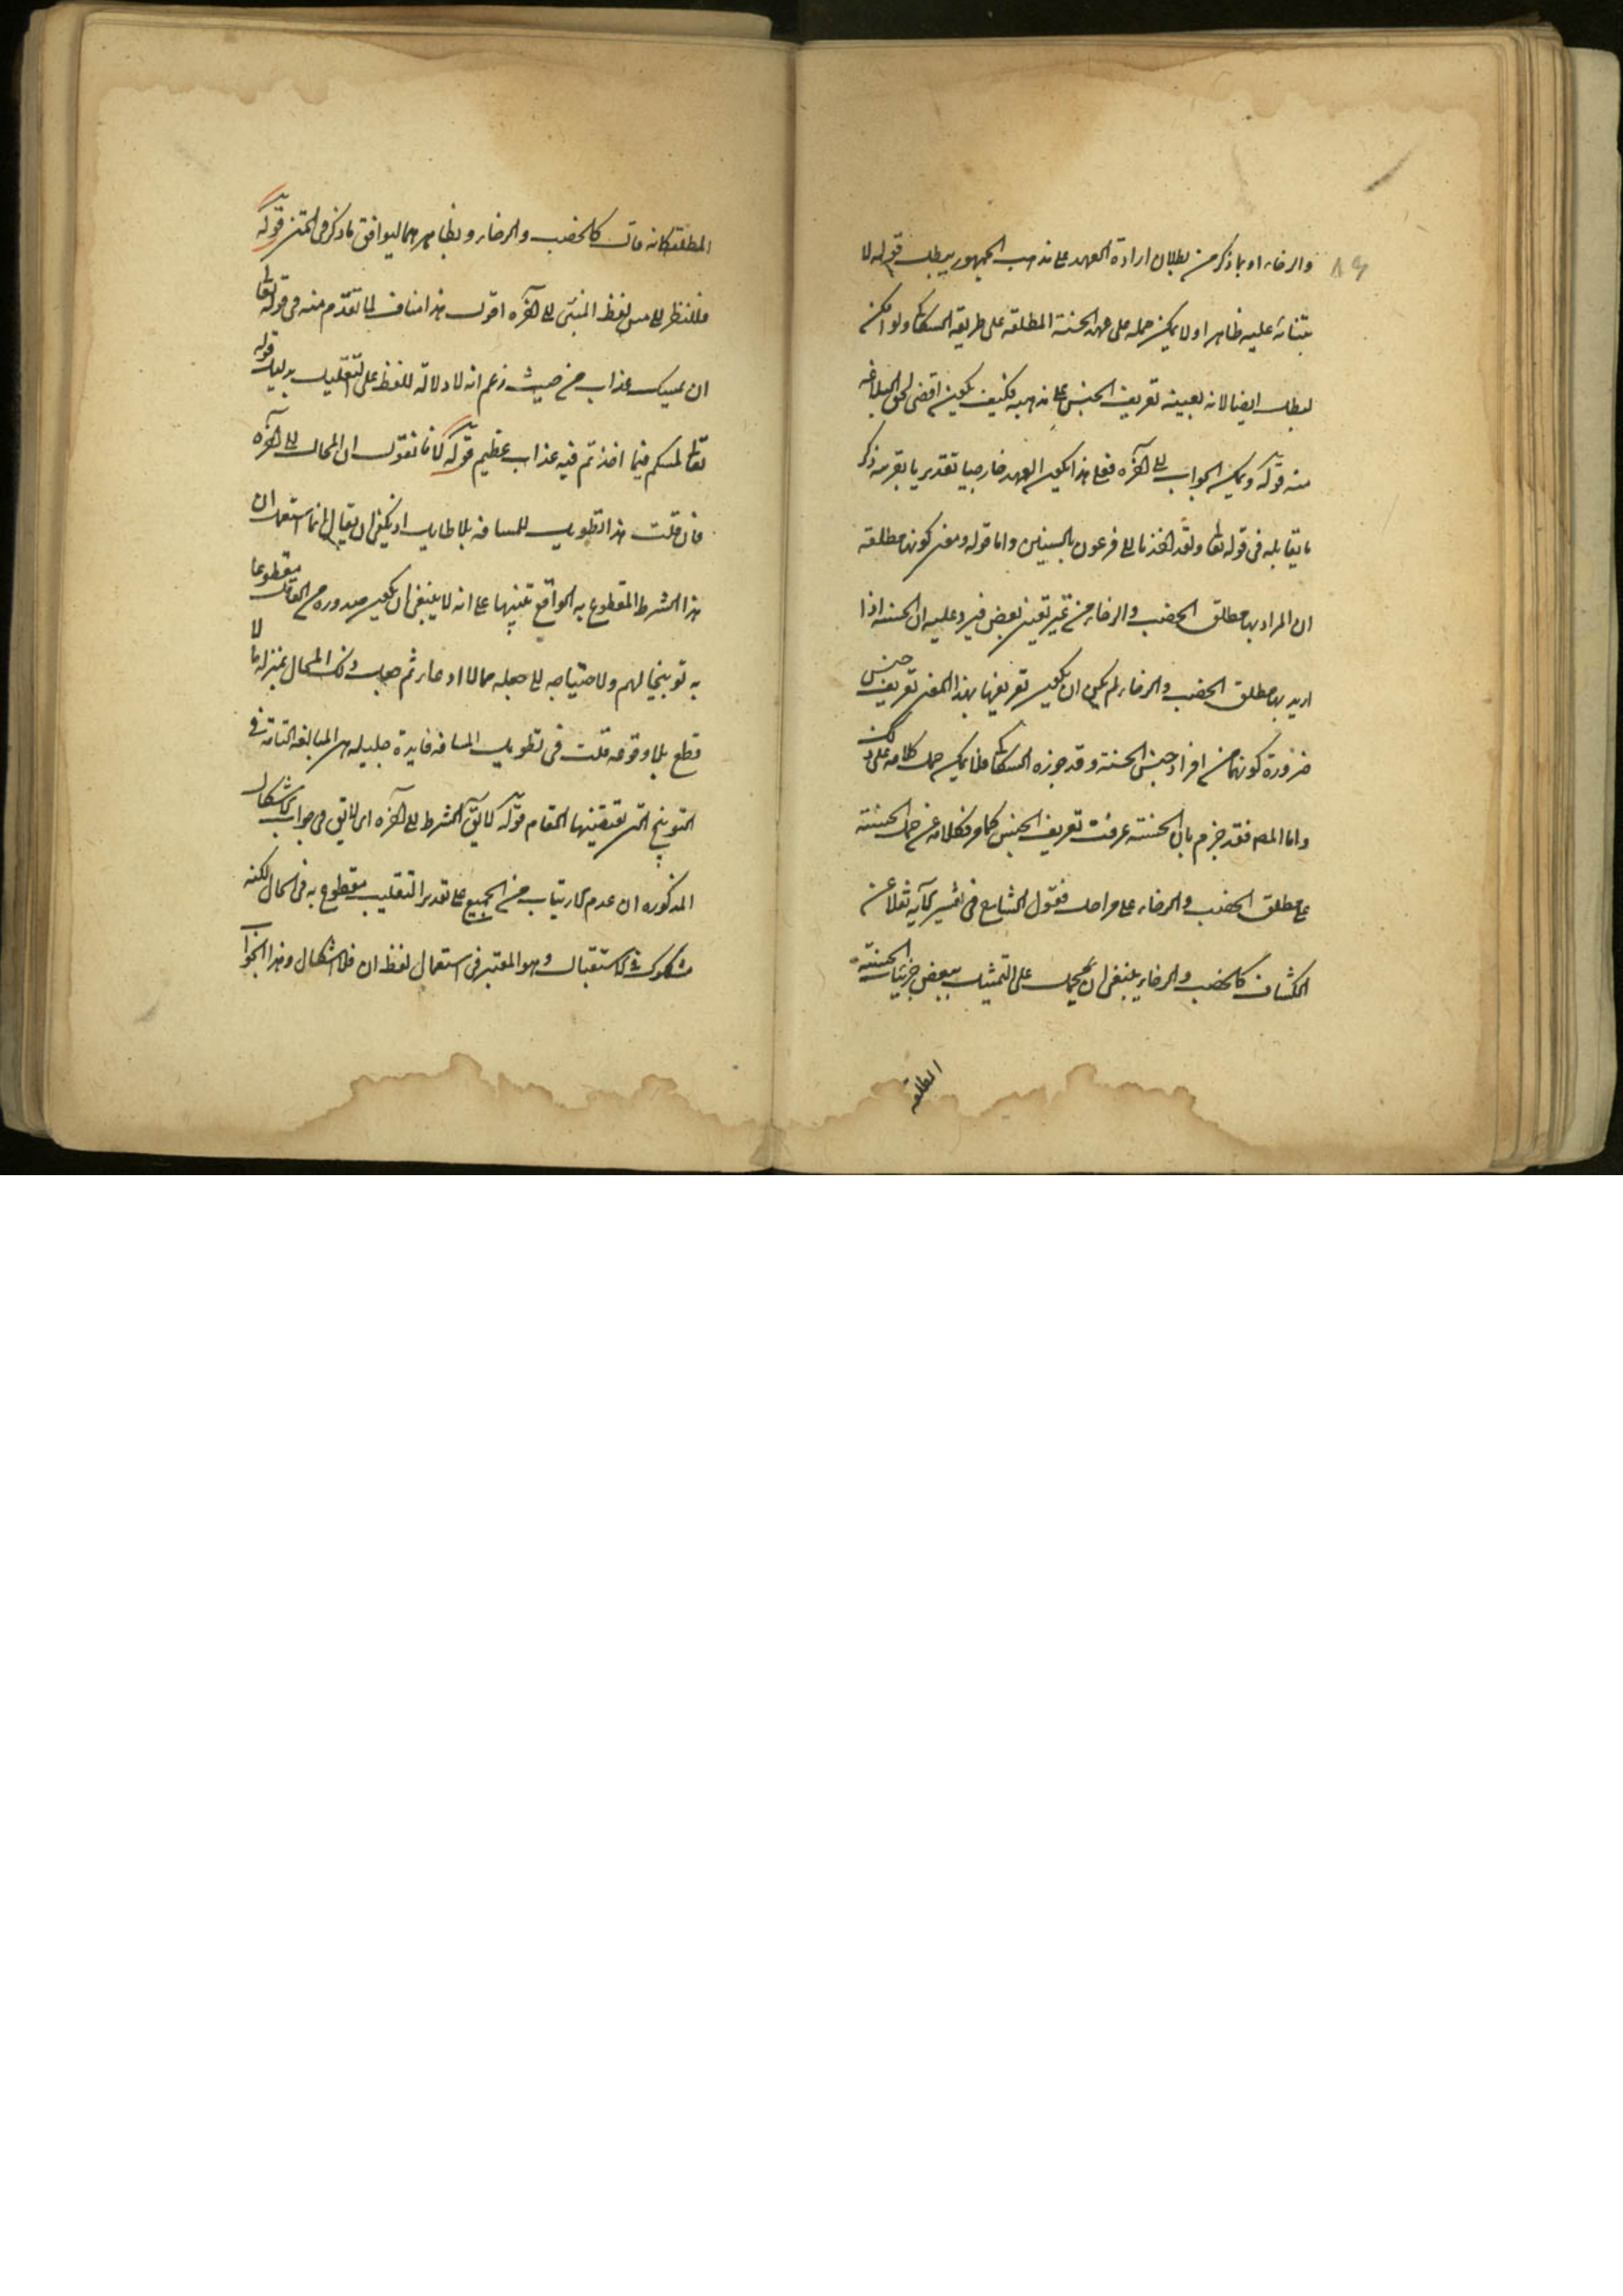 والرخاء او بما ذكر من بطلان ارادة العهد على مذهب الجمهور يبطل قوله لا
بتنائه عليه ظاهرا ولا يمكن حمله على عهد الحسنة المطلقة على طريقة السكاكى ولو امكن
لبطل ايضا لانه بعينه تعريف الجنس على مذهبه فكيف يكون اقضى لحق البلاغة
منه قوله ويمكن الجواب الى آخره فعلى هذا يكون العهد خارجيا تقديريا بقرينة ذكر
ما يقابله فى قوله تعا ولقد اخذنا آل فرعون بالسنين واما قوله ومعنى كونها مطلقة
ان المراد بها مطلق الخصب والرخاء من غير تعيين بعض فيرد عليه ان الحسنة اذا
اريد بها مطلق الخصب والرخاء لم يكن ان يكون تعريفها بهذا المعنى تعريف جنس
ضرورة كونهما من افراد جنس الحسنة وقد جوزه السكاكى فلا يمكن حمل كلامه على ذلك
واما المص فقد جزم بان الحسنة عرفت تعريف الجنس كما مر فكلامه عن حمل الحسنة
على مطلق الخصب والرخاء على مراحل فقول الشارح فى تفسير الآية نقلا عن
الكشاف كالخصب والرخاء ينبغى ان يحمل على التمثيل ببعض جزئيات الحسنة
المطلقة
المطلقة كانه قال كالخصب والرخاء ونظايرهما ليوافق ما ذكر فى المتن قوله
فللنظر الى مس لفظ المنبئ الى آخره اقول هذا مناف لما تقدم منه فى قوله تعا
ان يمسك عذاب من حيث زعم انه لا دلالة للفظ على التقليل بدليل قوله
تعا لمسكم فيما اخذتم فيه عذاب عظيم قوله لانا نقول ان المحال الى آخره
فان قلت هذا تطويل للمسافة بلا طايل اذ يكفى ان يقال انما استعمل ان
هذا الشرط المقطوع به الواقع تنبيها على انه لا ينبغى ان يكون صدوره من العاقل مقطوعا
به توبيخا لهم ولا احتياج الى جعله محالا ادعاء ثم جعل ذلك المحال بمنزلة ما لا
قطع بلا وقوعه قلت فى تطويل المسافة فايدة جليلة هى المبالغة التامة فى
التوبيخ التى يقتضيها المقام قوله لا يق الشرط الى آخره اى لا يق فى جواب الاشكال
المذكور ان عدم الارتياب من الجميع على تقدير التغليب مقطوع به فى الحال لكنه
مشكوك فى الاستقبال وهو المعتبر فى استعمال لفظ ان فلا اشكال وهذا الجواب